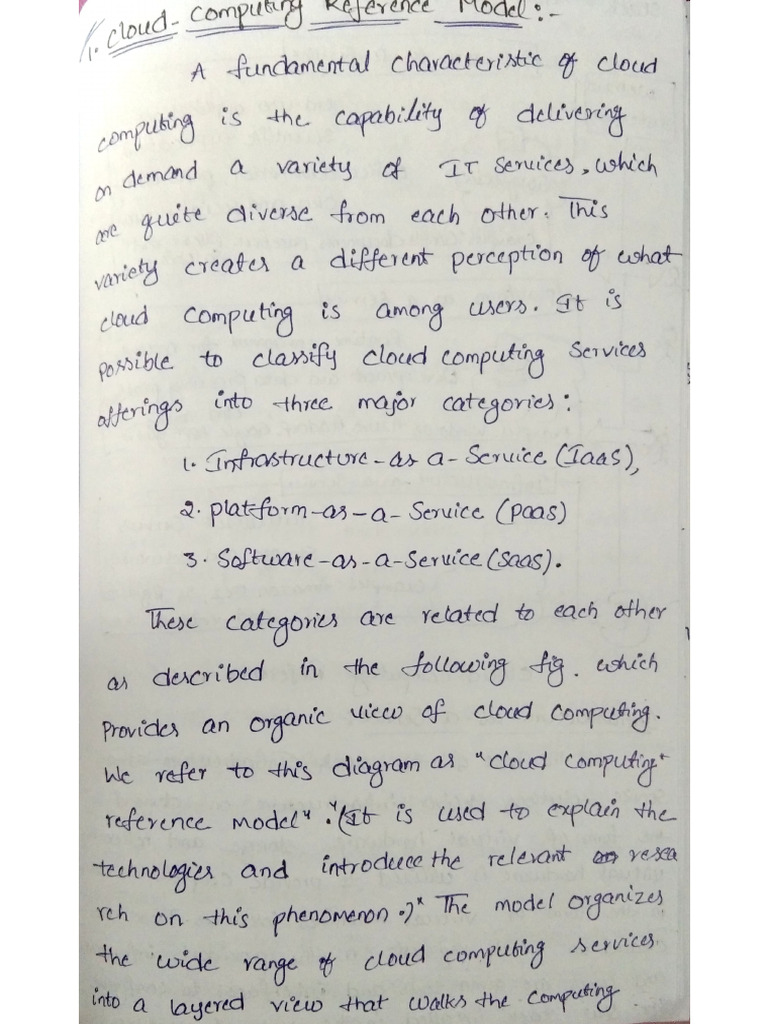 1. Cloud-Computing Reference Model:-
A fundamental characteristic of cloud
computing is the capability of delivering
on demand a variety of IT Services, which
are quite diverse from each other. This
variety creates a different perception of what
cloud computing is among users. It is
possible to classify cloud computing Services
offerings into three major categories:
1. Infrastructure-as a-Service (Iaas),
2. platform-as-a-Service (paas)
3. Software-as-a-Service (saas).
These categories are related to each other
as described in the following fig. which
Provides an organic view of cloud computing.
We refer to this diagram as "cloud computing"
reference model". "(It is used to explain the
technologies and introduce the relevant resea
rch on this phenomenon.)" The model organizes
the wide range of cloud computing services
into a layered view that walks the computing